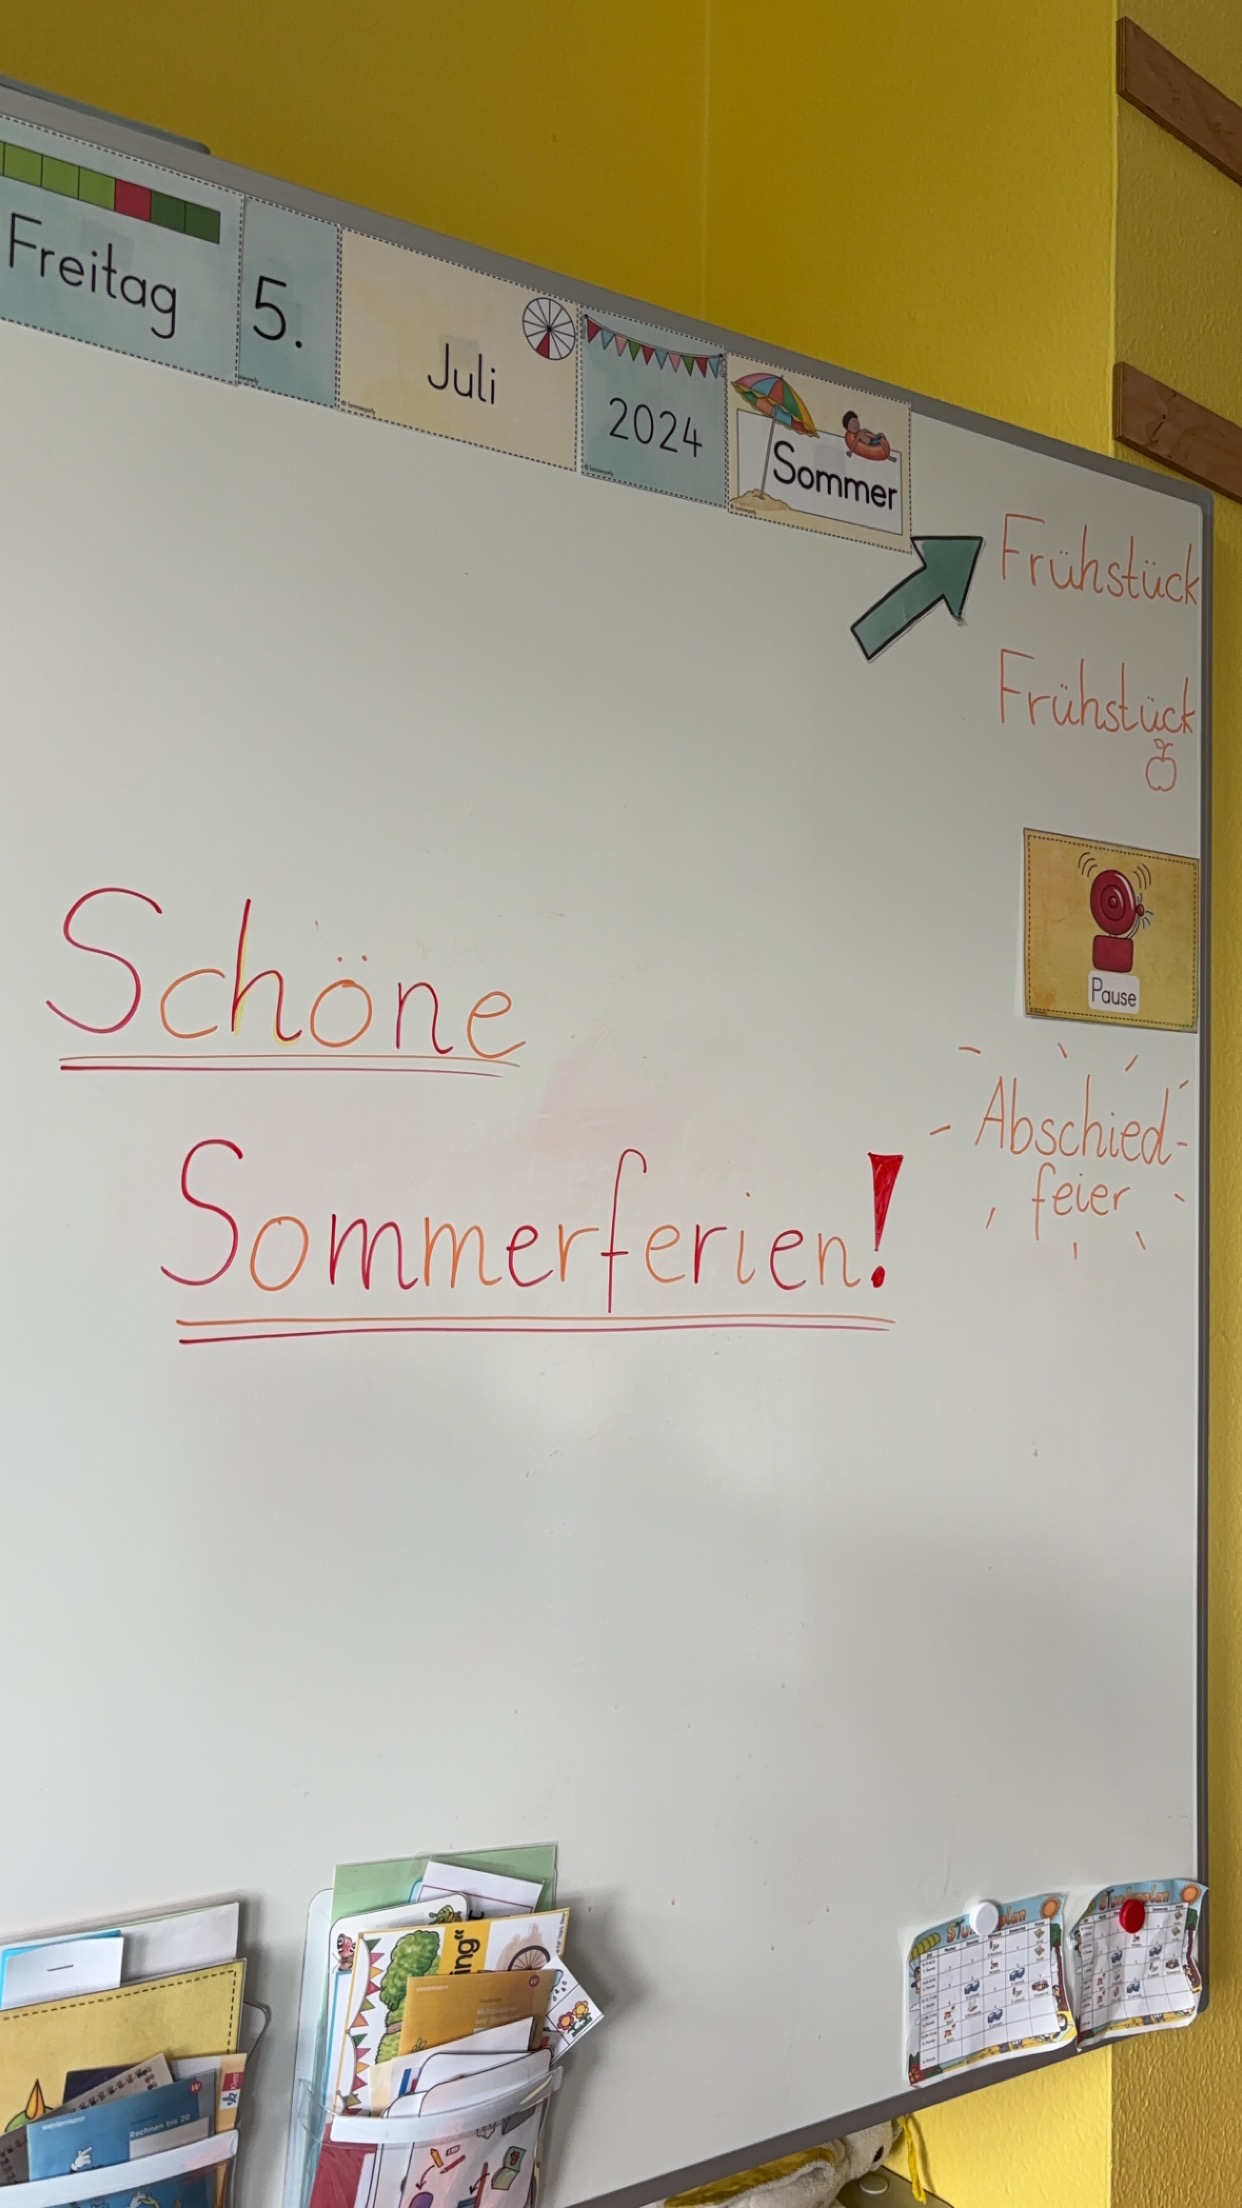 Freitag 5. Juli 2024 Sommer
Frühstück
Frühstück
Pause
Schöne
Sommerferien!
Abschied-
feier
ing"
westermann
Rechnen bis 20